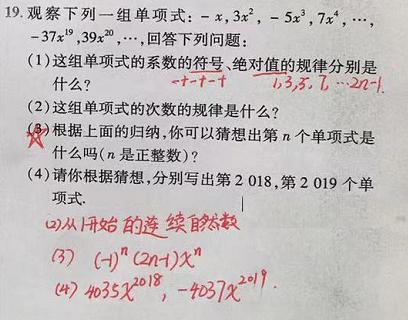 19. 观察下列一组单项式: -x, 3x², -5x³, 7x⁴, …,
-37x¹⁹, 39x²⁰, …, 回答下列问题:
(1) 这组单项式的系数的符号、绝对值的规律分别是
什么?
-+-+-+ 1,3,5,7,…2n-1.
(2) 这组单项式的次数的规律是什么?
(3) 根据上面的归纳, 你可以猜想出第 n 个单项式是
什么吗(n 是正整数)?
(4) 请你根据猜想, 分别写出第 2 018, 第 2 019 个单
项式.
(2) 从1开始的连续自然数
(3) (-1)ⁿ(2n-1)xⁿ
(4) 4035x²⁰¹⁸, -4037x²⁰¹⁹.